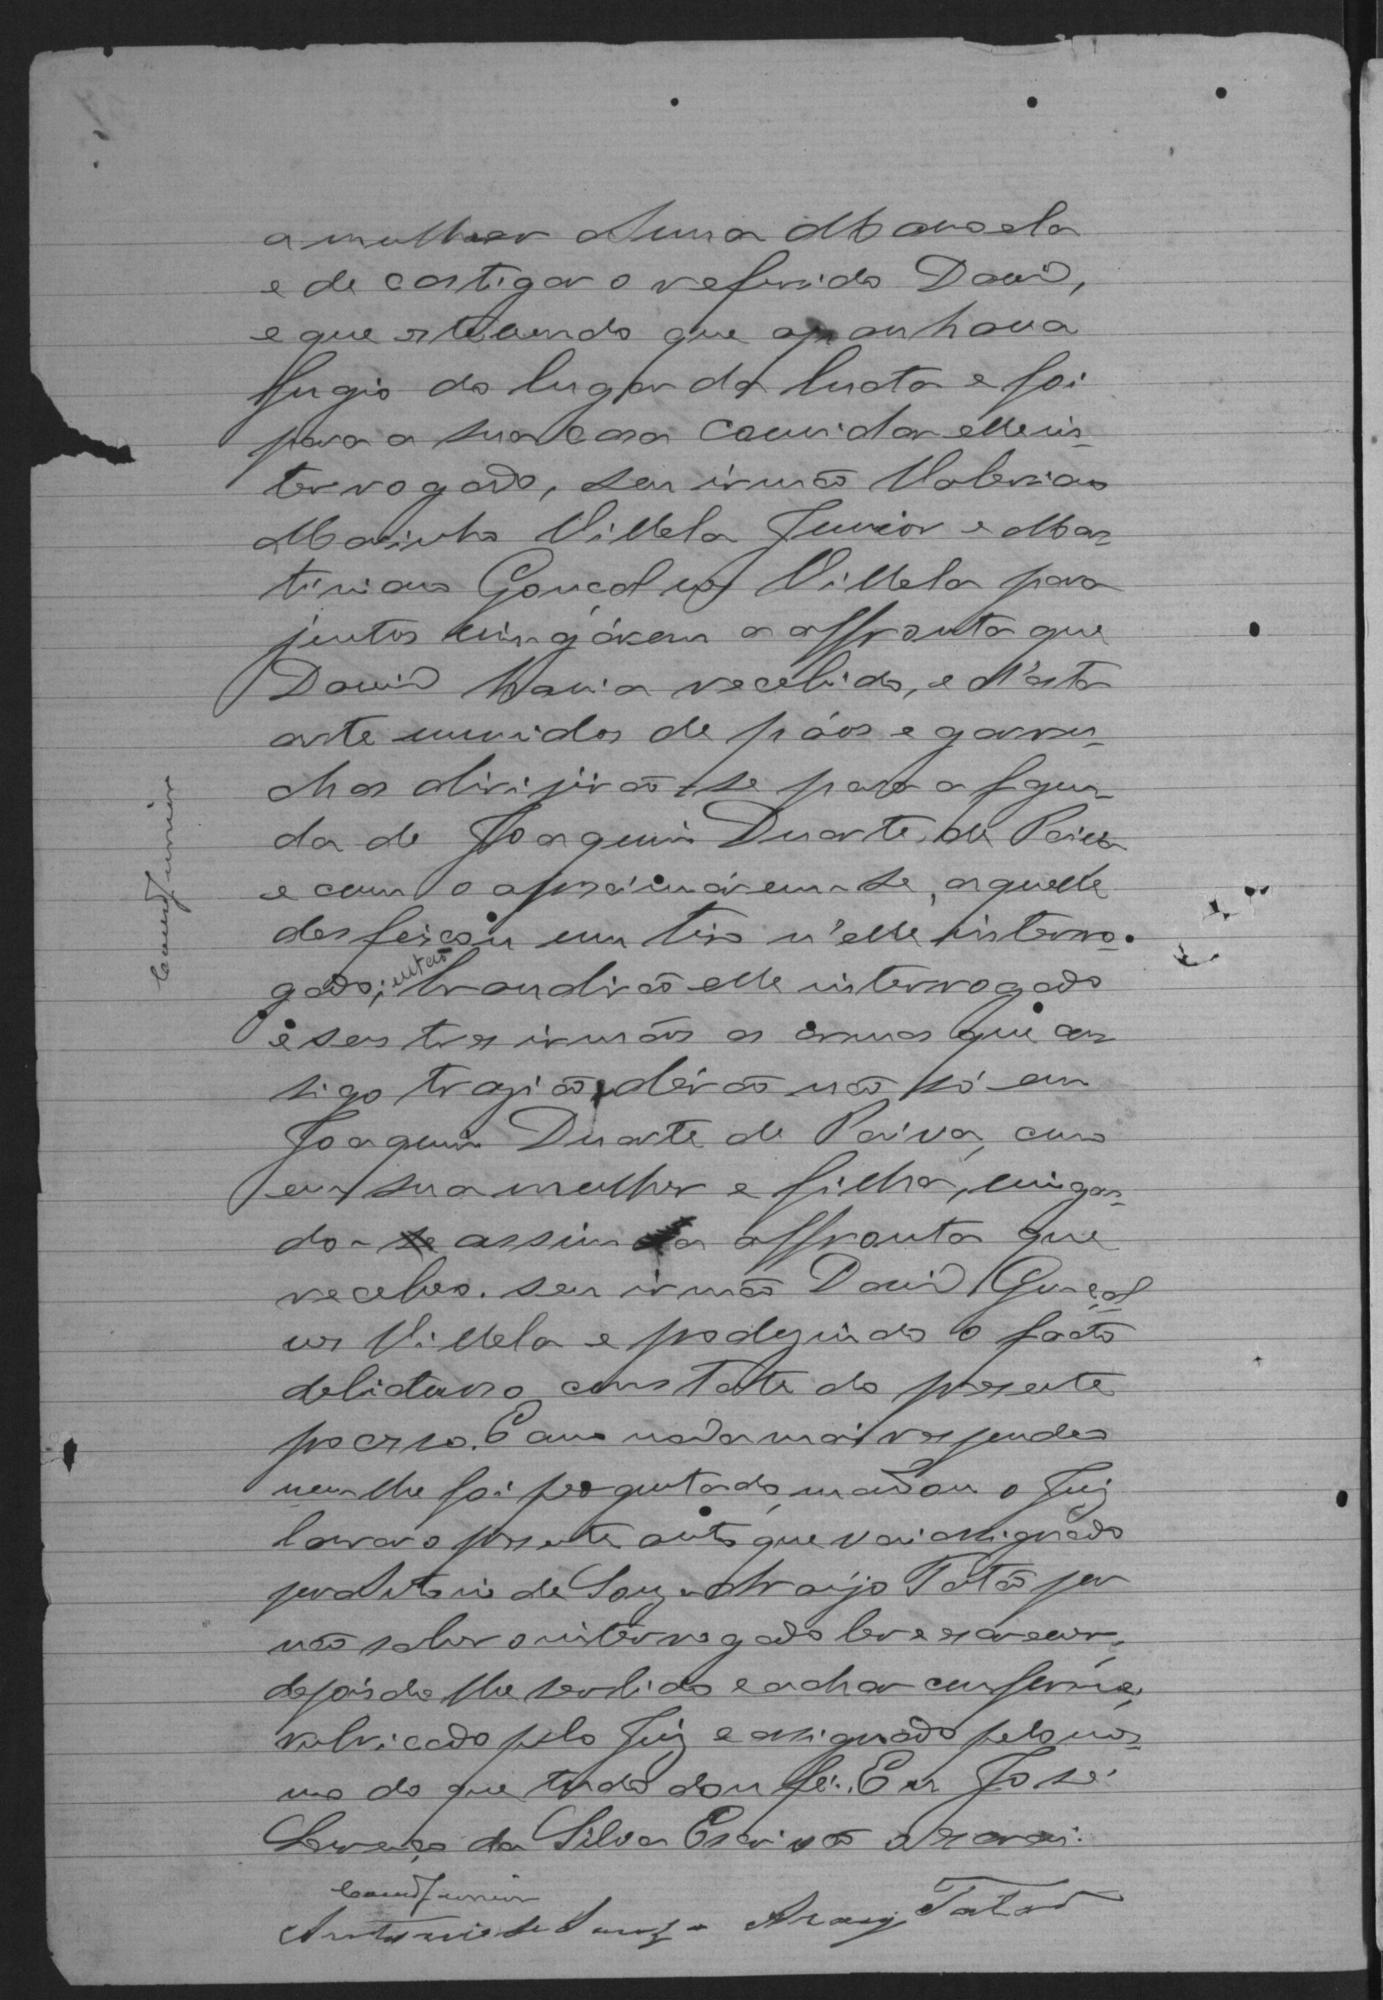 a mulher Anna Manoela
e de castigar o referido David,
e que este vendo que apanhava
fugio do lugar da lucta e foi
para a sua casa convidar elle in-
terrogado, seu irmão Valeriano
Marinho Villela Junior e Mar-
tiniano Gonçalves Villela para
juntos vingárem a affronta que
David havia recebido, e d'esta
arte munidos de páos e garru-
chas dirijirão-se para a fazen-
da de Joaquim Duarte de Paiva
e como o aproximárem-se, aquelle
desfeixou um tiro n'elle interro-
gado; então brandirão elle interrogado
e seus tres irmãos as armas que con-
sigo trazião, dérão não só em
Joaquim Duarte de Paiva, como
em sua mulher e filha, vingan-
do-se assim da affronta que
recebeo seu irmão David Gonçal
ves Villela e produzindo o facto
delictuoso constate do presente
processo. E como nada mais respondeo
nem lhe foi perguntado, mandou o Juiz
lavrar o presente auto que vai assignado
por Antonio de Souza Araújo Tatão por
não saber o interrogado ler e escrever,
depois de lhe ser lido e achar conforme,
rubricado pelo Juiz e assignado pelo mes-
mo do que tudo dou fé. Eu José
Lourenço da Silva Escrivão o escrevi.
Antonio de Souza Araujo Tatão